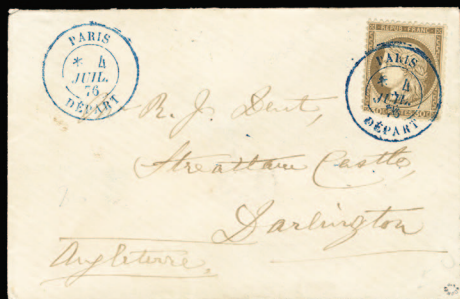 PARIS
* 4
JUIL.
76
DÉPART
REPUB. FRANC.
PARIS
* 4
JUIL.
76
DÉPART
R. J. Dent,
Streatlam Castle,
Darlington
Angleterre.